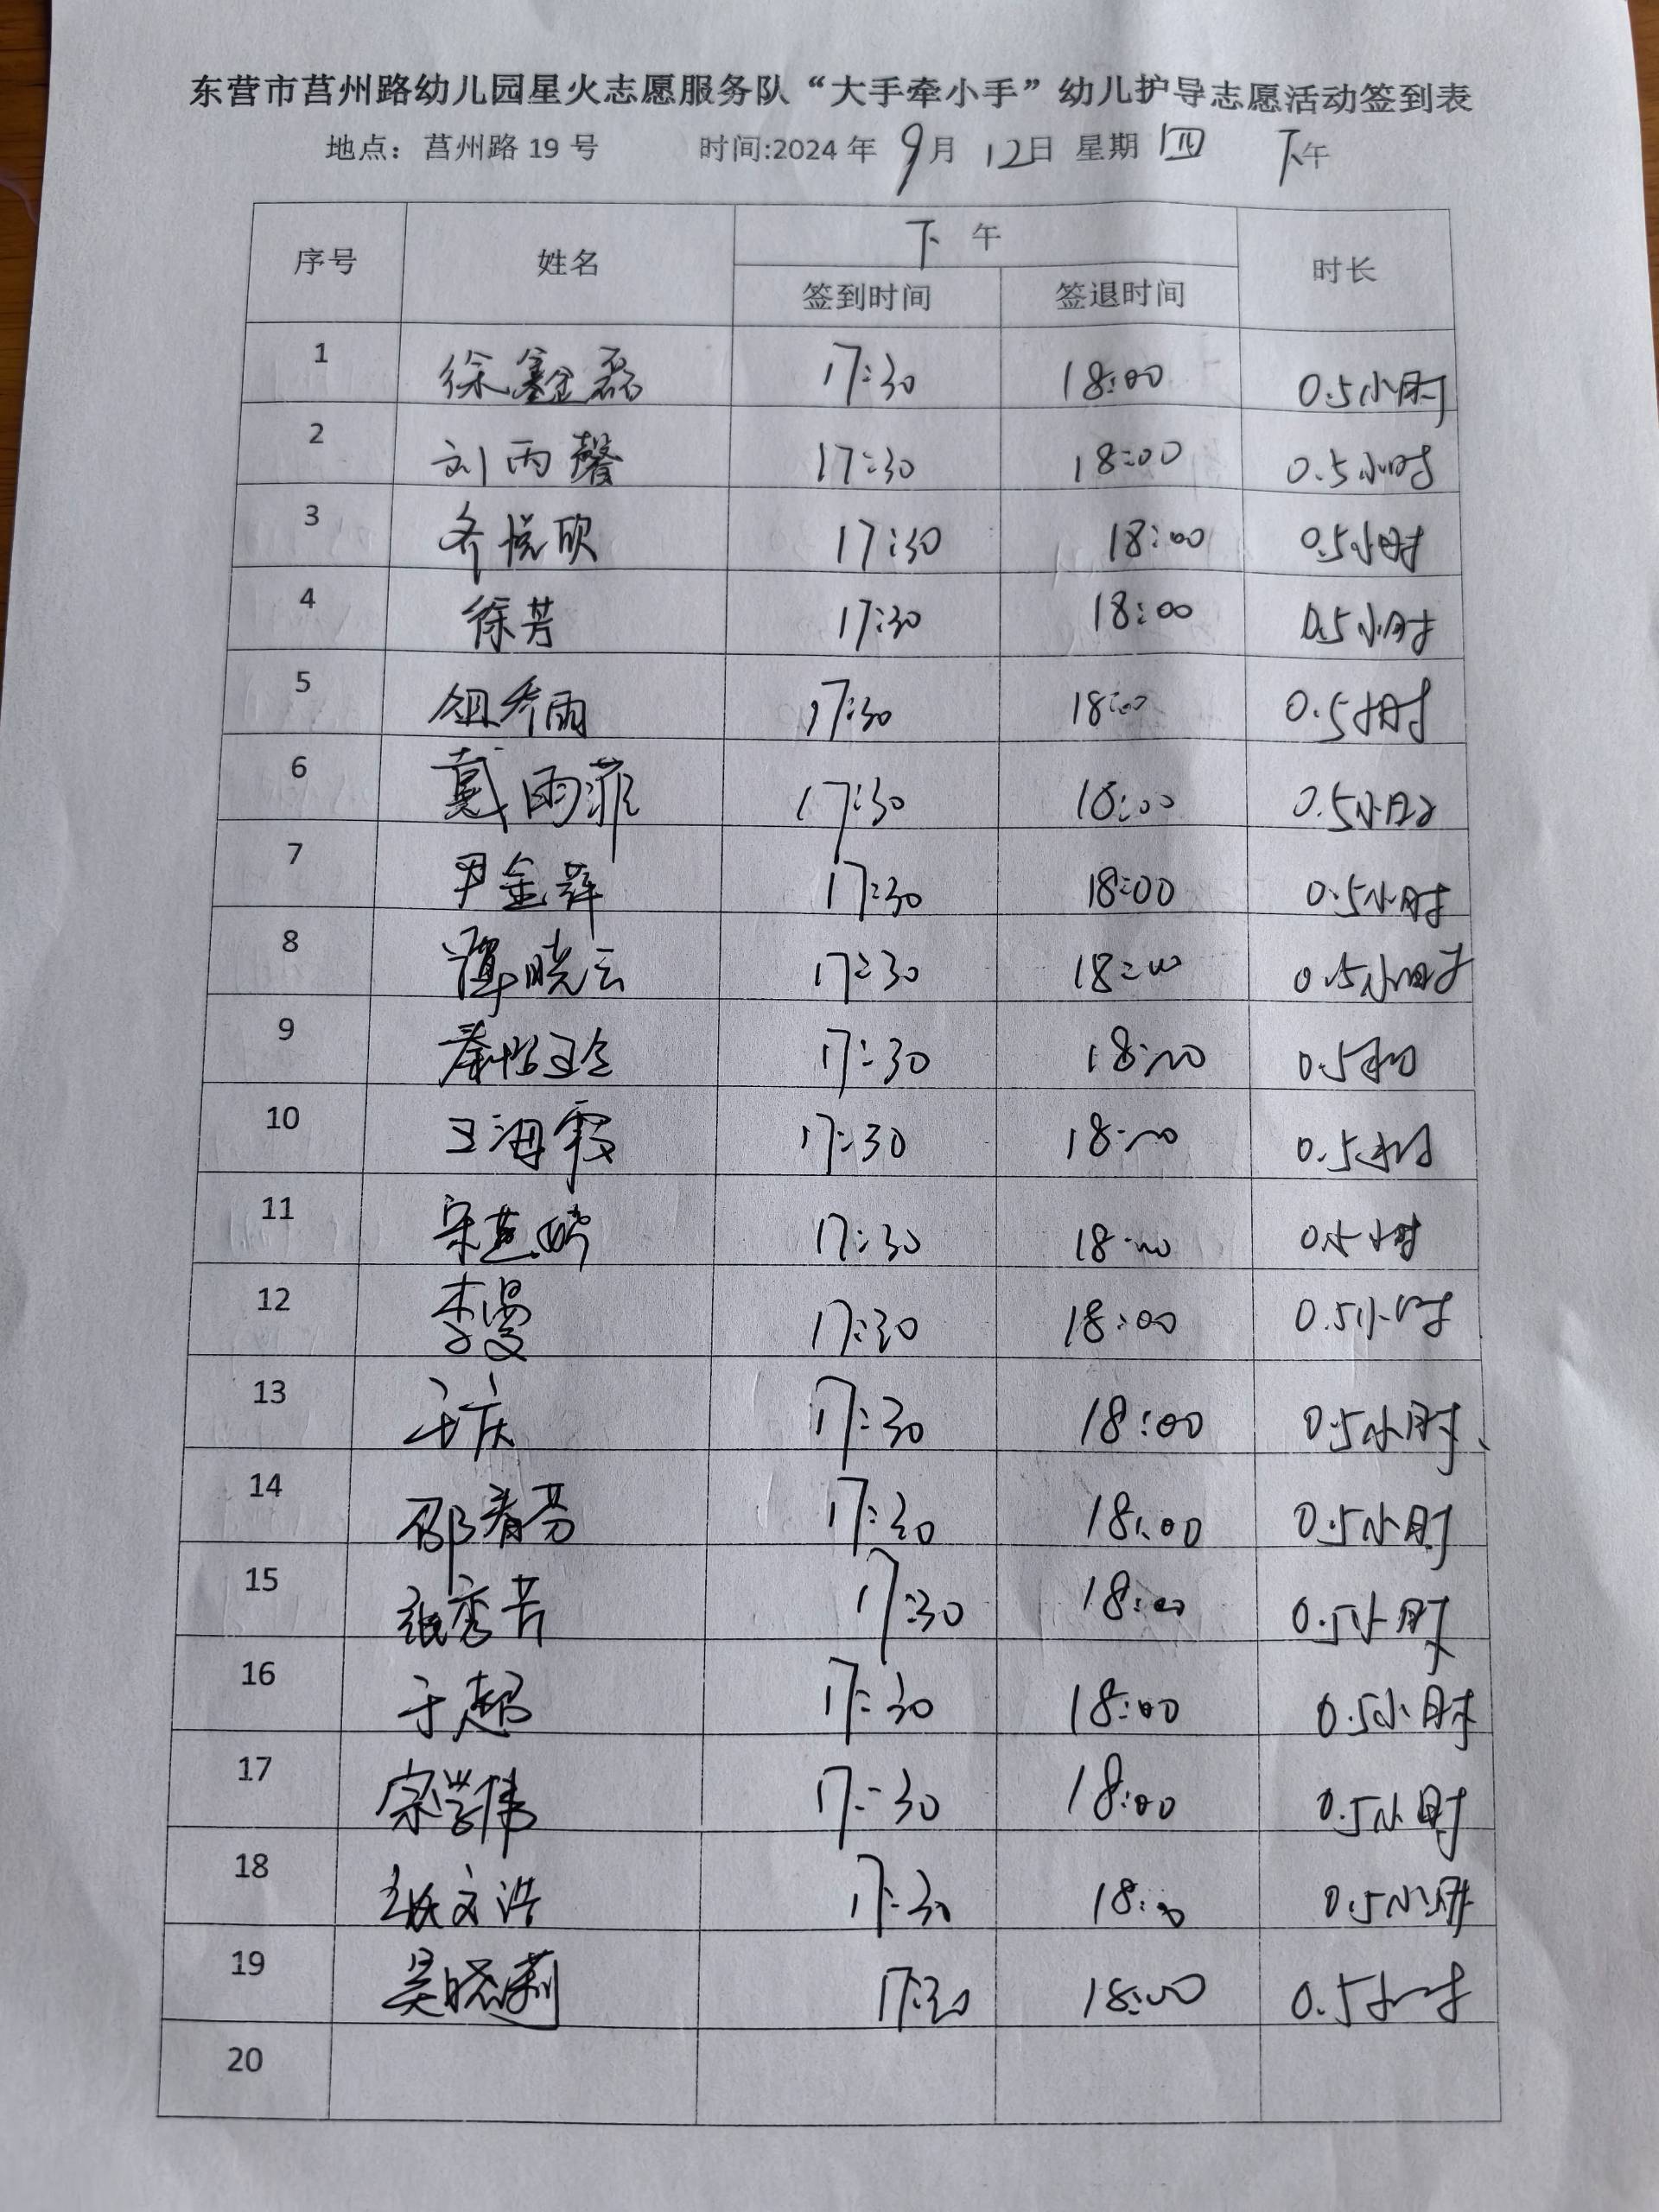 东营市莒州路幼儿园星火志愿服务队“大手牵小手”幼儿护导志愿活动签到表
地点：莒州路 19 号 时间:2024 年 9月 12日 星期 四 下午
序号 姓名 下 午 时长
签到时间 签退时间
1 徐鑫磊 17:30 18:00 0.5小时
2 刘丙馨 17:30 18:00 0.5小时
3 齐悦欣 17:30 18:00 0.5小时
4 徐芳 17:30 18:00 0.5小时
5 17:30 18:00 0.5小时
6 戴雨菲 17:30 18:00 0.5小时
7 尹金萍 17:30 18:00 0.5小时
8 谭晓云 17:30 18:00 0.5小时
9 17:30 18:00 0.5小时
10 王海霞 17:30 18:00 0.5小时
11 17:30 18:00 0.5小时
12 李曼 17:30 18:00 0.5小时
13 17:30 18:00 0.5小时
14 邵春芳 17:30 18:00 0.5小时
15 张秀芳 17:30 18:00 0.5小时
16 于超 17:30 18:00 0.5小时
17 宗学伟 17:30 18:00 0.5小时
18 文浩 17:30 18:00 0.5小时
19 吴晓莉 17:30 18:00 0.5小时
20